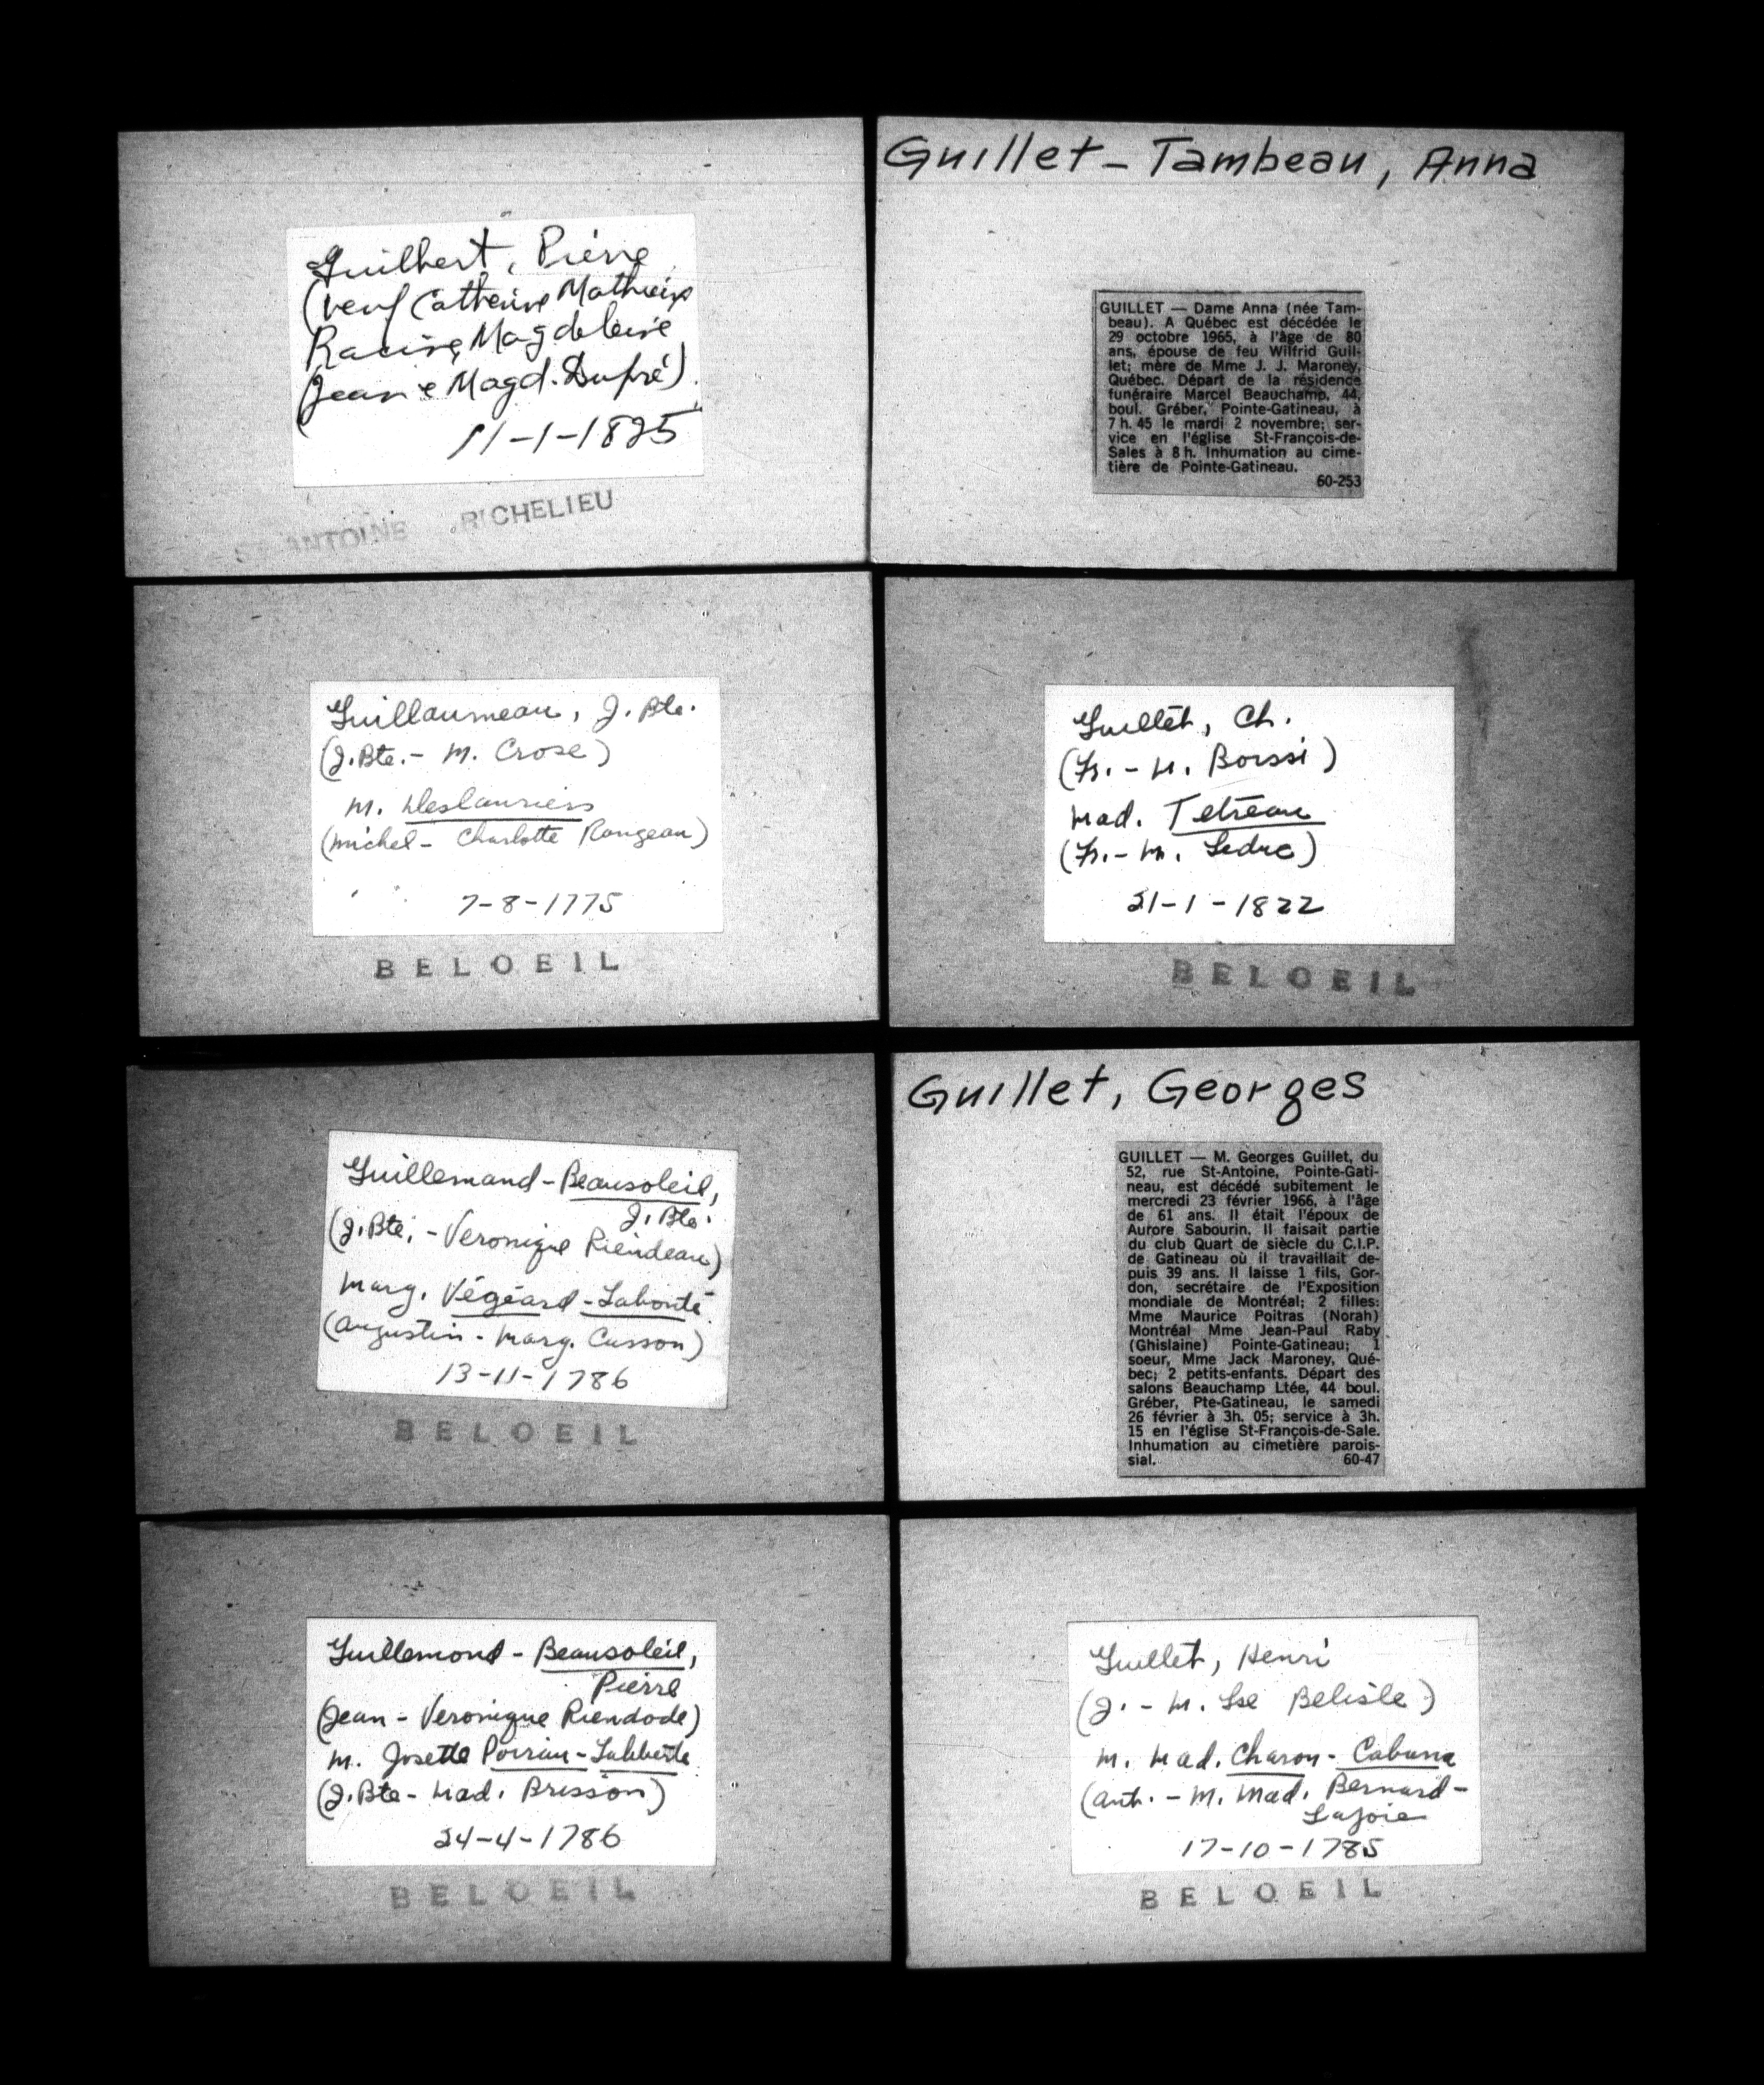 Guilbert, Pierre
(veuf Catherine Mathieu
Racine, Magdeleine
(Jean e Magd. Dupré)
11-1-1825
ST ANTOINE RICHELIEU
Guillaumeau, J. Bte.
(J. Bte. - M. Crose)
M. Deslauriers
(Michel - Charlotte Rongeau)
7-8-1775
BELOEIL
Guillemand - Beausoleil,
J. Bte.
(J. Bte. - Veronique Riendeau)
Marg. Végéard - Labonté
(Augustin - Marg. Cusson)
13-11-1786
BELOEIL
Guillemond - Beausoleil,
Pierre
(Jean - Veronique Riendode)
M. Josette Poirian - Laliberté
(J. Bte - Mad. Brisson)
24-4-1786
BELOEIL
Guillet - Tambeau, Anna
GUILLET — Dame Anna (née Tam-
beau). A Québec est décédée le
29 octobre 1965, à l'âge de 80
ans, épouse de feu Wilfrid Guil-
let; mère de Mme J. J. Maroney,
Québec. Départ de la résidence
funéraire Marcel Beauchamp, 44,
boul. Gréber, Pointe-Gatineau, à
7 h. 45 le mardi 2 novembre; ser-
vice en l'église St-François-de-
Sales à 8 h. Inhumation au cime-
tière de Pointe-Gatineau.
60-253
Guillet, Ch.
(Fr. - M. Borssi)
Mad. Tetreau
(Fr. - M. Leduc)
21-1-1822
BELOEIL
Guillet, Georges
GUILLET — M. Georges Guillet, du
52, rue St-Antoine, Pointe-Gati-
neau, est décédé subitement le
mercredi 23 février 1966, à l'âge
de 61 ans. Il était l'époux de
Aurore Sabourin. Il faisait partie
du club Quart de siècle du C.I.P.
de Gatineau où il travaillait de-
puis 39 ans. Il laisse 1 fils, Gor-
don, secrétaire de l'Exposition
mondiale de Montréal; 2 filles:
Mme Maurice Poitras (Norah)
Montréal Mme Jean-Paul Raby
(Ghislaine) Pointe-Gatineau; 1
soeur, Mme Jack Maroney, Qué-
bec; 2 petits-enfants. Départ des
salons Beauchamp Ltée, 44 boul.
Gréber, Pte-Gatineau, le samedi
26 février à 3h. 05; service à 3h.
15 en l'église St-François-de-Sale.
Inhumation au cimetière parois-
sial. 60-47
Guillet, Henri
(J. - M. Lse Belisle)
M. Mad. Charon - Cabana
(Ant. - M. Mad. Bernard -
Lajoie
17-10-1785
BELOEIL